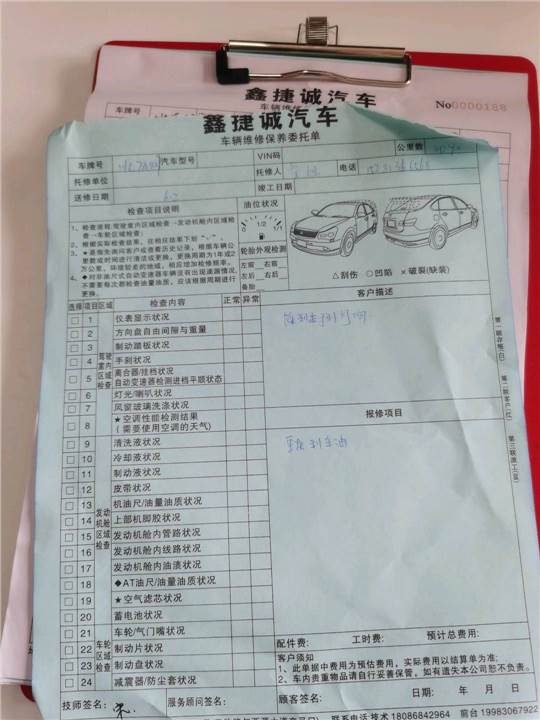 鑫捷诚汽车
车辆维
No0000188
车牌号
鑫捷诚汽车
车辆维修保养委托单
公里数
车牌号 汽车型号 VIN码
托修单位 托修人 电话
送修日期 竣工日期
检查项目说明 油位状况
1、检查流程:驾驶室内区域检查→发动机舱内区域检查→车轮区域检查;
2、根据实际检查结果，在相应结果下划“√”。
3、★是指先询问客户或查看历史记录，根据车辆公里数或时间进行清洁或更换，更换周期为1年或2万公里，环境较差的地域，相应增加检修频率。
4、◆对非油尺式自动变速器车辆没有出现渗漏情况，不需要每次都检查油量油质，应该根据周期进行更换。
0 1/2 1/1
轮胎外观检测
左前□ 右前□
左后□ 右后□
备胎□
△刮伤 ○凹陷 ×破裂(缺装)
选择 项目 区域 检查内容 正常 异常
客户描述
驾驶室内区域检查
1 仪表显示状况
2 方向盘自由间隙与重量
3 制动踏板状况
4 手刹状况
5 离合器/挂档状况
自动变速器检测进档平顺状态
6 灯光/喇叭状况
7 风窗玻璃洗涤状况
8 ★空调性能检测结果
(需要使用空调的天气)
报修项目
发动机舱区域检查
9 清洗液状况
10 冷却液状况
11 制动液状况
12 皮带状况
13 机油尺/油量油质状况
14 上部机脚胶状况
15 发动机舱内管路状况
16 发动机舱内线路状况
17 发动机舱内油渍状况
18 ◆AT油尺/油量油质状况
19 ★空气滤芯状况
20 蓄电池状况
车轮区域检查
21 车轮/气门嘴状况
22 制动片状况
23 制动盘状况
24 减震器/防尘套状况
第一联存根(白)
第二联客户(红)
第三联派工(蓝)
配件费: 工时费: 预计总费用:
客户须知
1、此单据中费用为预估费用，实际费用以结算单为准;
2、车内贵重物品请自行妥善保管，如有遗失本公司恕不负责。
技师签名: 服务顾问签名: 顾客签名: 日期: 年 月 日
联系电话:技术 18086842964 前台 19983067922